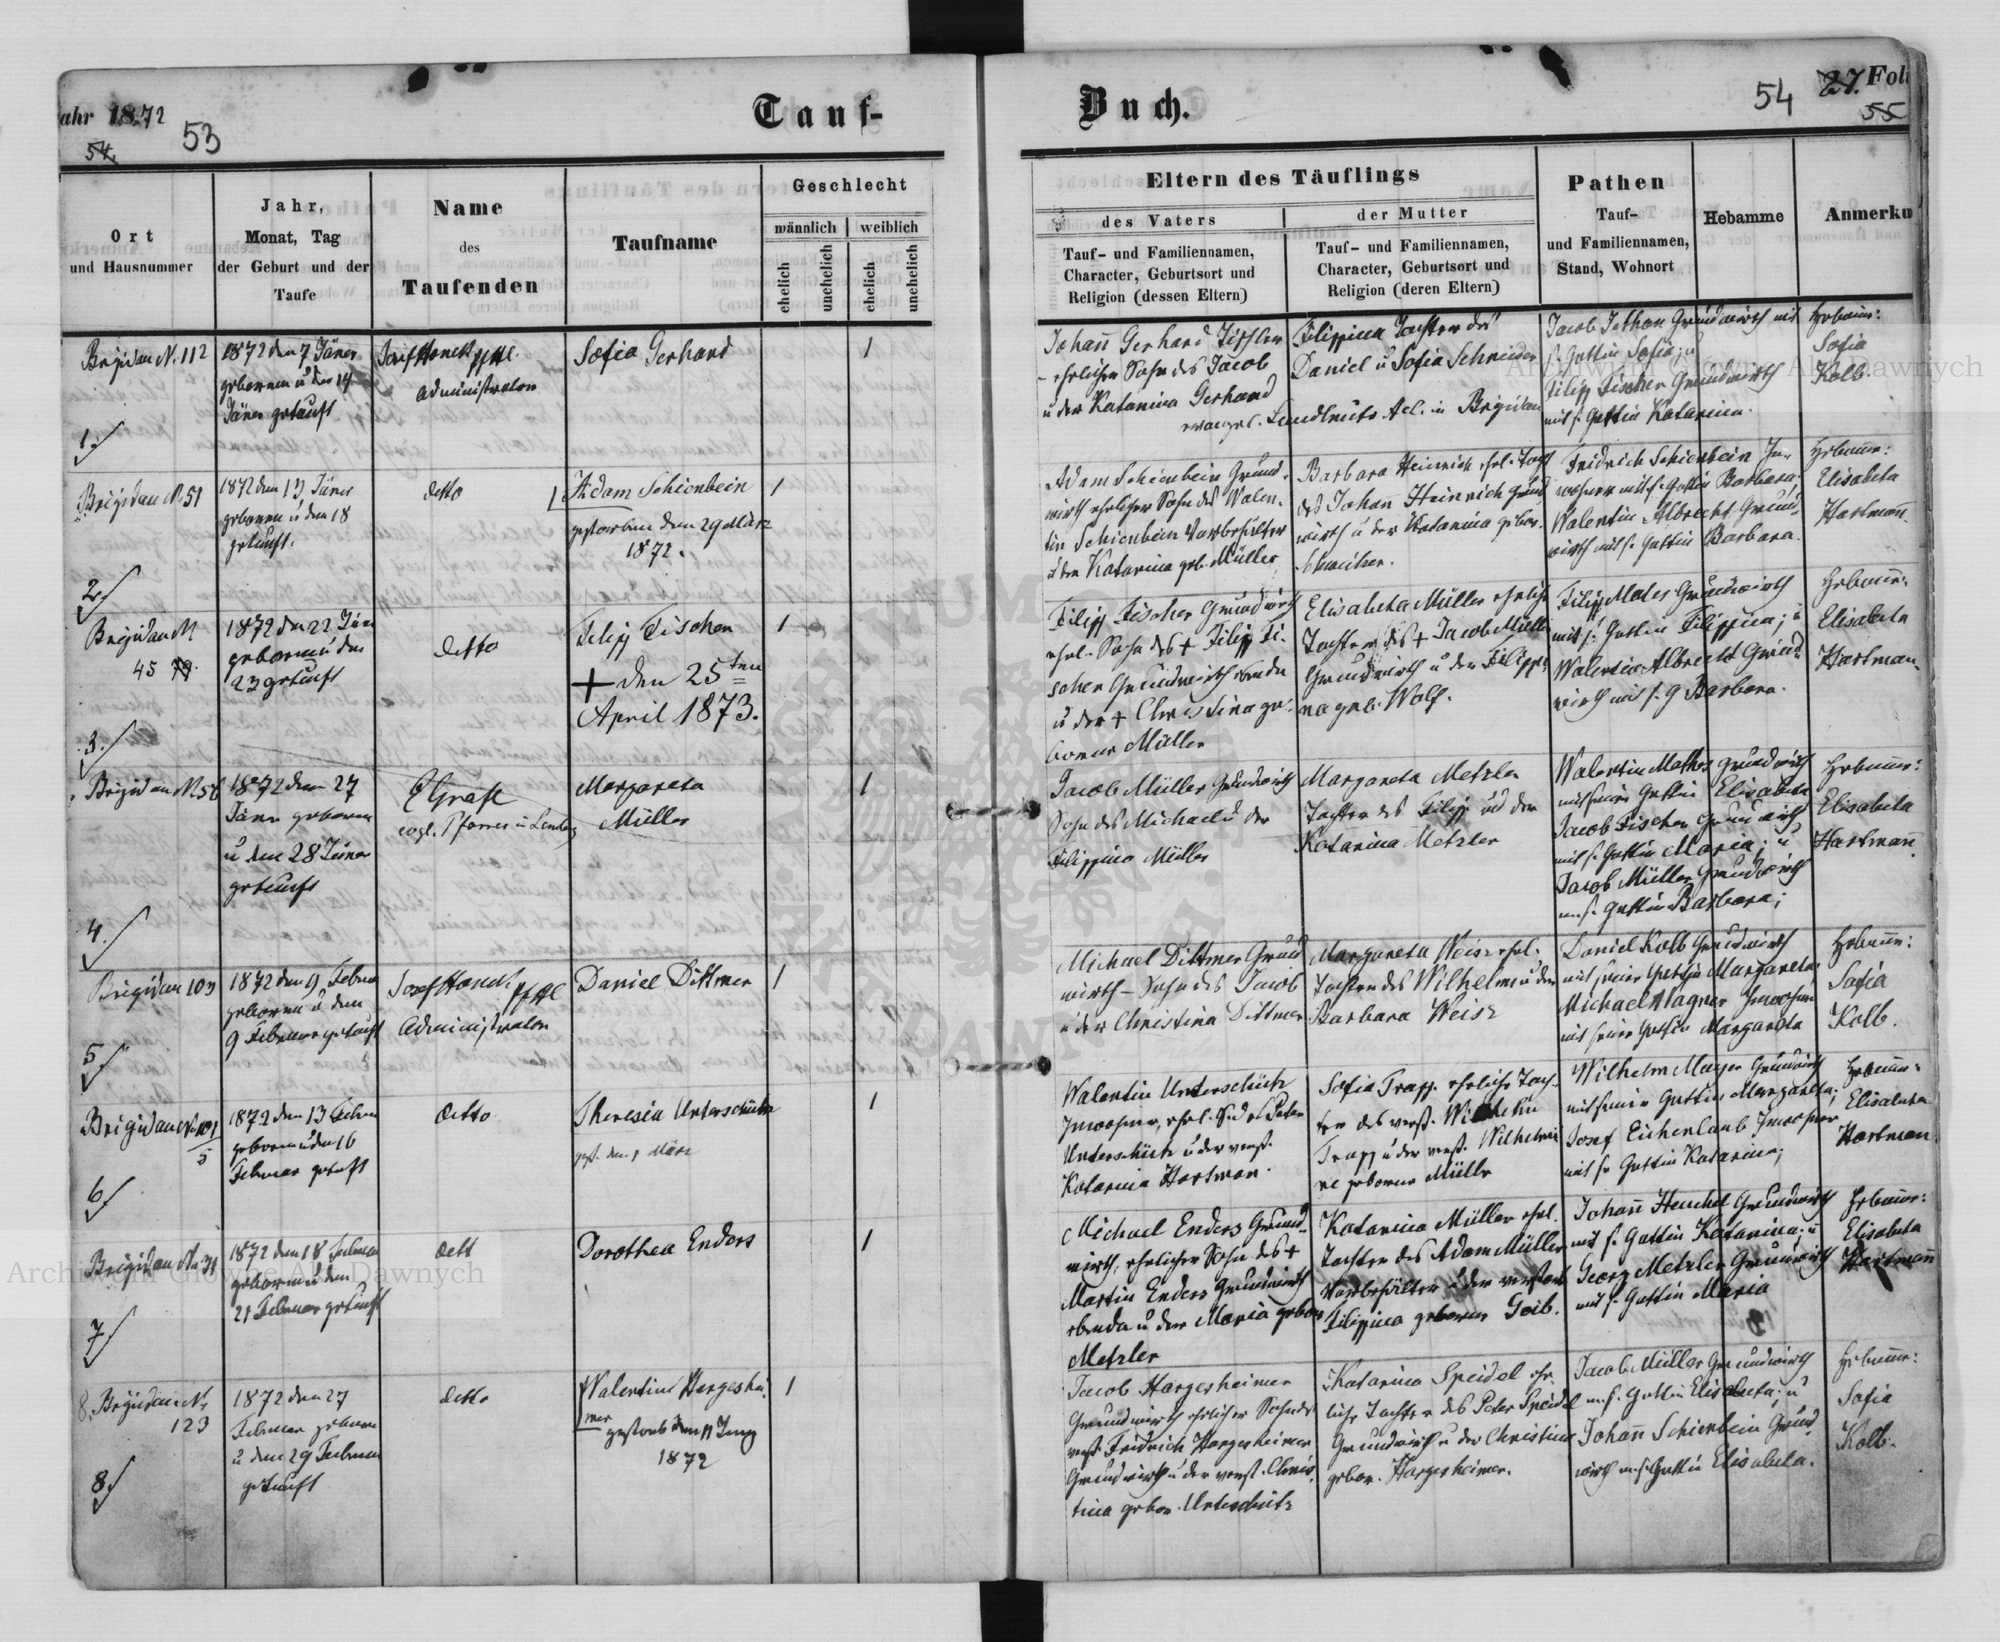 ahr 1872
54.
53
Tauf-
Buch.
54
27. Foli
55
Ort
und Hausnummer
Jahr,
Monat, Tag
der Geburt und der
Taufe
Name
des
Taufenden
Taufname
Geschlecht
männlich
weiblich
ehelich
unehelich
ehelich
unehelich
Eltern des Täuflings
des Vaters
Tauf- und Familiennamen,
Character, Geburtsort und
Religion (dessen Eltern)
der Mutter
Tauf- und Familiennamen,
Character, Geburtsort und
Religion (deren Eltern)
Pathen
Tauf-
und Familiennamen,
Stand, Wohnort
Hebamme
Anmerku
Brigidau N. 112
1.
1872 den 7 Jäner
geboren u den 14
Jäner getauft
Josef Hanek
Administrator
Sofia Gerhard
1
Johañ Gerhard Tischler
ehelicher Sohn des Jacob
u der Katarina Gerhard
evangel. Landleute A.C. in Brigidau
Filippina Tochter des
Daniel u Sofia Schneider
Jacob Grundwirth mit
s. Gattin Sofia; u
Filipp Fischer Grundwirth
mit s. Gattin Katarina.
Hebamme:
Sofia
Kolb.
Brigidau N 51
2
1872 den 13 Jäner
geboren u den 18
getauft.
detto
Adam Schienbein
gestorben den 29 März
1872.
1
Adam Schienbein Grund-
wirth ehelicher Sohn des Walen-
tin Schienbein Vorbehälter
u der Katarina geb. Müller
Barbara Heinrich ehel. Toch
des Johañ Heinrich Grund
wirth u der Katarina gebor.
Fridrich Schienbein In-
wohner mit s. Gattin Barbara,
Walentin Albrecht Grund-
wirth mit s. Gattin Barbara.
Hebamme:
Elisabeta
Hartmañ.
Brigidau N
45
3.
1872 den 22 Jän
geboren u den
23 getauft
detto
Filipp Fischer
+ den 25ten
April 1873.
1
Filipp Fischer Grundwirth
ehel. Sohn des + Filipp Fi-
scher Grundwirth ebenda
u der + Christina ge-
borene Müller
Elisabeta Müller eheliche
Tochter des + Jacob Müller
Grundwirth u der Filippi-
na geb. Wolf.
Filipp Grundwirth
mit s. Gattin Filippina; u
Walentin Albrecht Grund-
wirth mit s. g Barbara.
Hebamme:
Elisabeta
Hartman.
Brigidau N 56
4.
1872 den 27
Jäner geboren
u den 28 Jäner
getauft
Grafl
evgl. Pfarrer in
Margareta
Müller
1
Jacob Müller Grundwirth
Sohn des Michael u der
Filippina Müller
Margareta Metzler
Tochter des Filipp und der
Katarina Metzler
Walentin Grundwirth
mit seiner Gattin Elisabeta
Jacob Fischer Grundwirth
mit s. Gattin Maria; u
Jacob Müller Grundwirth
m. s. Gattin Barbara;
Hebamme:
Elisabeta
Hartmañ
Brigidau 103
5
1872 den 9 Februar
geboren u den
9 Februar getauft
Josef Hanek
Administrator
Daniel Dittmer
1
Michael Dittmer Grund
wirth - Sohn des Jacob
u der Christina Dittmer
Margareta Weisz ehel.
Tochter des Wilhelm u der
Barbara Weisz
Daniel Kolb Grundwirth
mit seiner Gattin Margareta
Michael Wagner Inwohner
mit seiner Gattin Margareta
Hebamme:
Sofia
Kolb.
Brigidau N 101
5
6
1872 den 13 Febru
geboren u den 16
Februar getauft
detto
Theresia Unterschütz
gest. den März
1
Walentin Unterschütz
Inwohner, ehel. S. des Peter
Unterschütz u der verst.
Katarina Hartman.
Sofia Trapp eheliche Toch-
ter des verst. Wilhelm
Trapp u der verst. Wilhelmi
ne geborene Müller
Wilhelm Mayer Grundwirth
mit seiner Gattin Margareta;
Josef Eichenlaub Inwohner
mit s. Gattin Katarina;
Hebamme:
Elisabeta
Hartman.
Brigidau N 31
7
1872 den 18 Februar
geboren u den
21 Februar getauft
dett
Dorothea Enders
1
Michael Enders Grund-
wirth, ehelicher Sohn des +
Martin Enders Grundwirth
ebenda u der Maria gebor
Metzler
Katarina Müller ehel.
Tochter des Adam Müller
Vorbehälter u der verstorb
Filippina geborene Goib.
Johañ Henchel Grundwirth
mit s. Gattin Katarina; u
Georg Metzler Grundwirth
mit s. Gattin Maria
Hebamme:
Elisabeta
Hartmañ
8. Brigidau N.
123
8
1872 den 27
Februar geboren
u den 29 Februar
getauft
detto
Walentin Hargeshei-
mer
gestorb den 11 Juny
1872
1
Jacob Hargesheimer
Grundwirth ehelicher Sohn des
verst. Fridrich Hargesheimer
Grundwirth u der verst. Chris-
tina gebor. Unterschütz
Katarina Speidel ehe-
liche Tochter des Peter Speidel
Grundwirth u der Christina
gebor. Hargesheimer.
Jacob Müller Grundwirth
m. s. Gattin Elisabeta; u
Johañ Schienbein Grund
wirth m. s. Gattin Elisabeta.
Hebamme:
Sofia
Kolb.
Archiwum Główne Akt Dawnych
Archiwum Główne Akt Dawnych